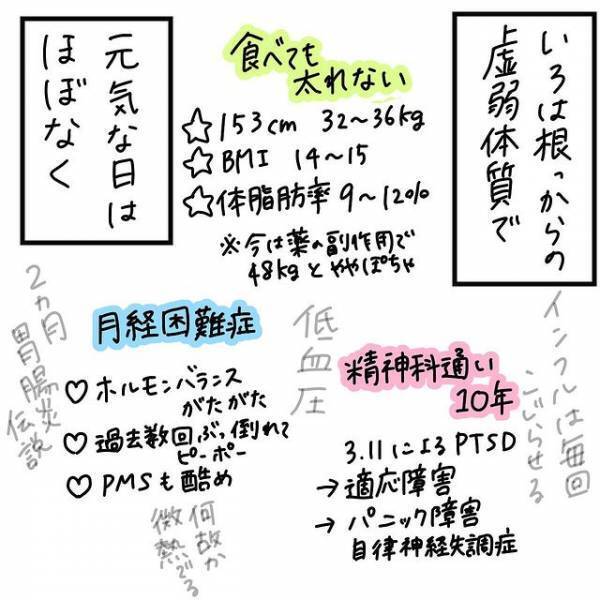 いろは根っからの
虚弱体質で
元気な日は
ほぼなく
食べても
太れない
☆153cm 32〜36kg
☆BMI 14〜15
☆体脂肪率 9〜12%
※今は薬の副作用で
48kgとややぽちゃ
インフルは毎回
こじらせる
低血圧
2ヵ月
胃腸炎
伝説
月経困難症
♡ホルモンバランス
がたがた
♡過去数回ぶっ倒れて
ピーポー
♡PMSも酷め
何故か
微熱でる
精神科通い
10年
3.11によるPTSD
→適応障害
→パニック障害
自律神経失調症